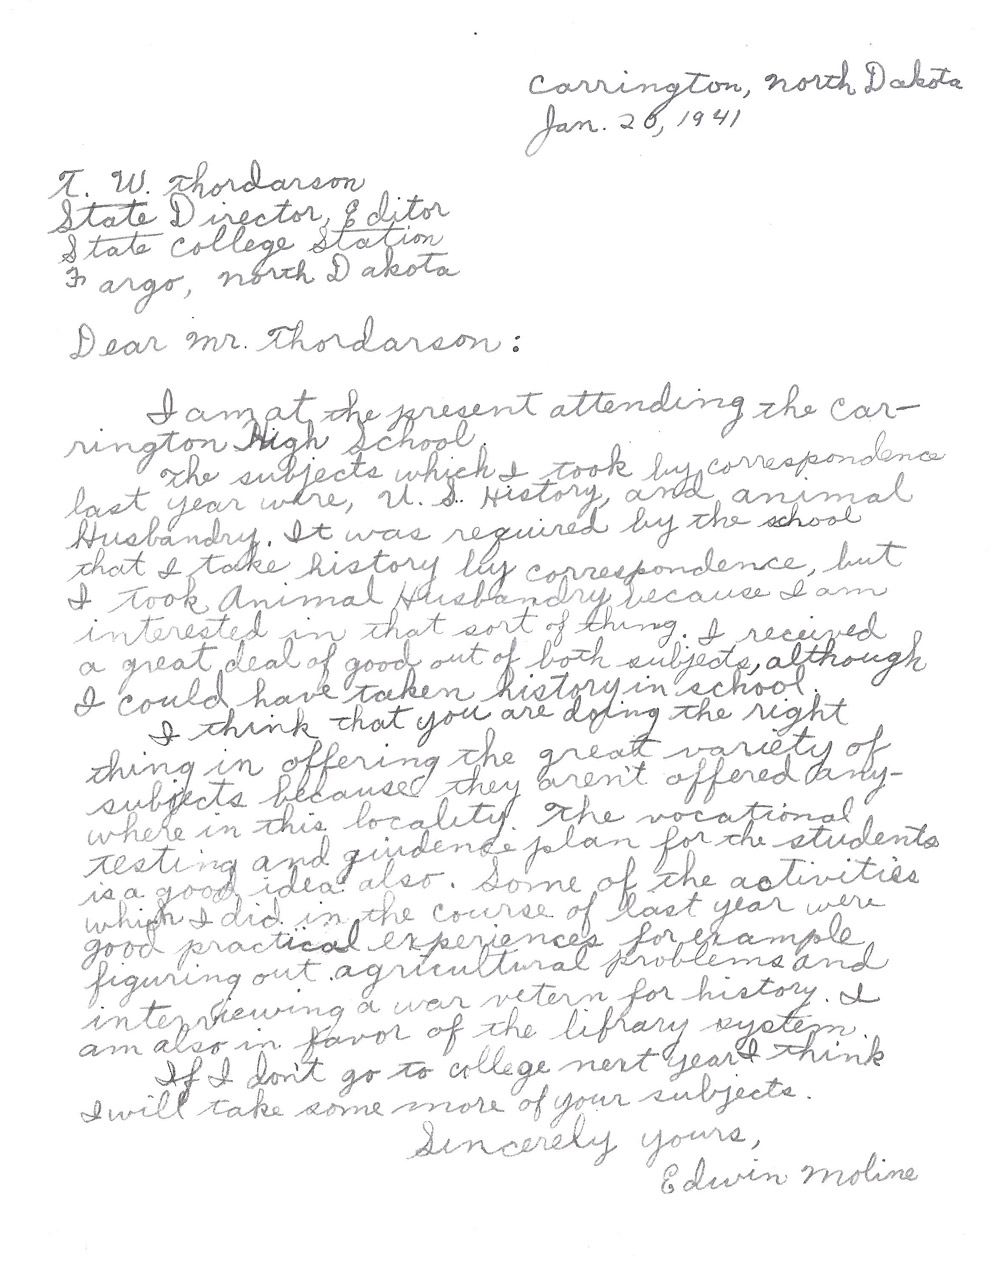 Carrington, North Dakota
Jan. 20, 1941
T. W. Thordarson
State Director, Editor
State College Station
Fargo, North Dakota
Dear Mr. Thordarson:
I am at the present attending the Car-
rington High School.
The subjects which I took by correspondence
last year were, U. S. History, and animal
Husbandry. It was required by the school
that I take history by correspondence, but
I took Animal Husbandry because I am
interested in that sort of thing. I received
a great deal of good out of both subjects, although
I could have taken history in school.
I think that you are doing the right
thing in offering the great variety of
subjects because they aren't offered any-
where in this locality. The vocational
testing and giudence plan for the students
is a good idea also. Some of the activities
which I did in the course of last year were
good practical experiences for example
figuring out agricultural problems and
interviewing a war vetern for history. I
am also in favor of the library system.
If I don't go to college next year I think
I will take some more of your subjects.
Sincerely yours,
Edwin Moline